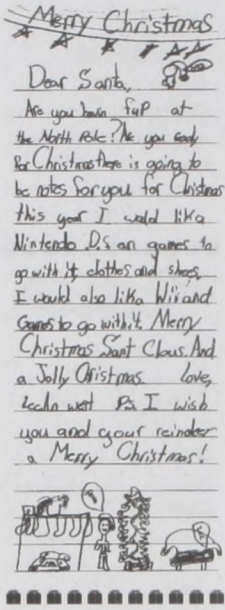 Merry Christmas
Dear Santa,
Are you haven fun at
the North Pole? Are you ready
for Christmas there is going to
be notes for you for Christmas
this year I would lika
Nintendo D.S an games to
go with it, clothes and shoes,
I would also lika Wii and
Games to go with it. Merry
Christmas Sant Claus. And
a Jolly Christmas. Love,
west P.s I wish
you and your reindeer
a Merry Christmas!